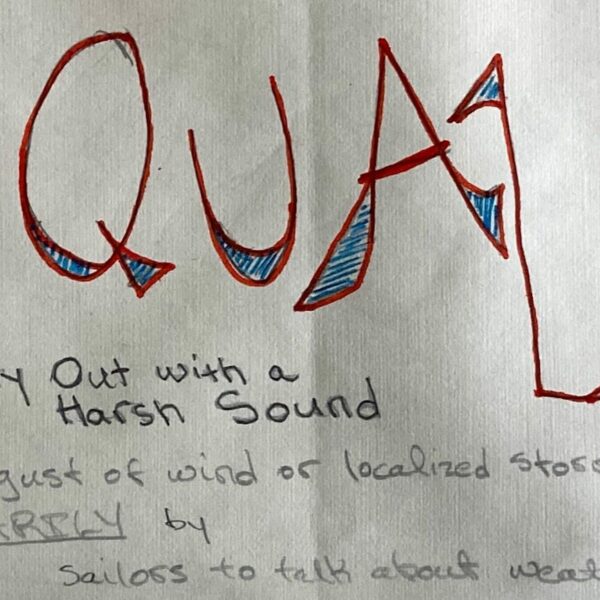 QUAL
y Out with a
Harsh Sound
gust of wind or localized stor
ARILY by
sailors to talk about weat